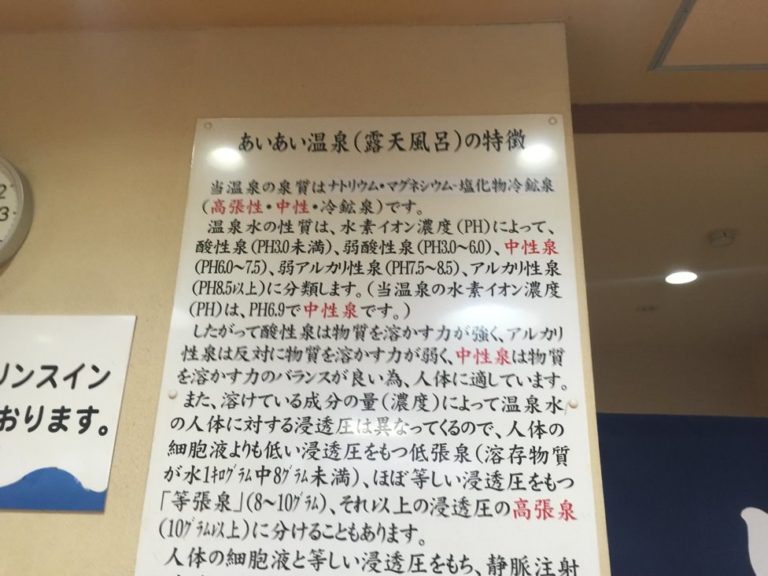 あいあい温泉(露天風呂)の特徴
当温泉の泉質はナトリウム・マグネシウム-塩化物冷鉱泉
(高張性・中性・冷鉱泉)です。
温泉水の性質は、水素イオン濃度(PH)によって、
酸性泉(PH3.0未満)、弱酸性泉(PH3.0〜6.0)、中性泉
(PH6.0〜7.5)、弱アルカリ性泉(PH7.5〜8.5)、アルカリ性泉
(PH8.5以上)に分類します。(当温泉の水素イオン濃度
(PH)は、PH6.9で中性泉です。)
したがって酸性泉は物質を溶かす力が強く、アルカリ
性泉は反対に物質を溶かす力が弱く、中性泉は物質
を溶かす力のバランスが良い為、人体に適しています。
また、溶けている成分の量(濃度)によって温泉水
の人体に対する浸透圧は異なってくるので、人体の
細胞液よりも低い浸透圧をもつ低張泉(溶存物質
が水1キログラム中8グラム未満)、ほぼ等しい浸透圧をもつ
「等張泉」(8〜10グラム)、それ以上の浸透圧の高張泉
(10グラム以上)に分けることもあります。
人体の細胞液と等しい浸透圧をもち、静脈注射
リンスイン
おります。
2
3